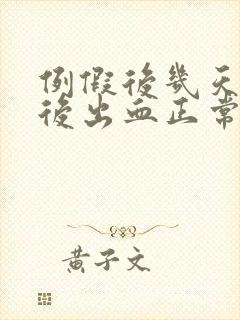 例假後幾天
後出血正常
黃子文